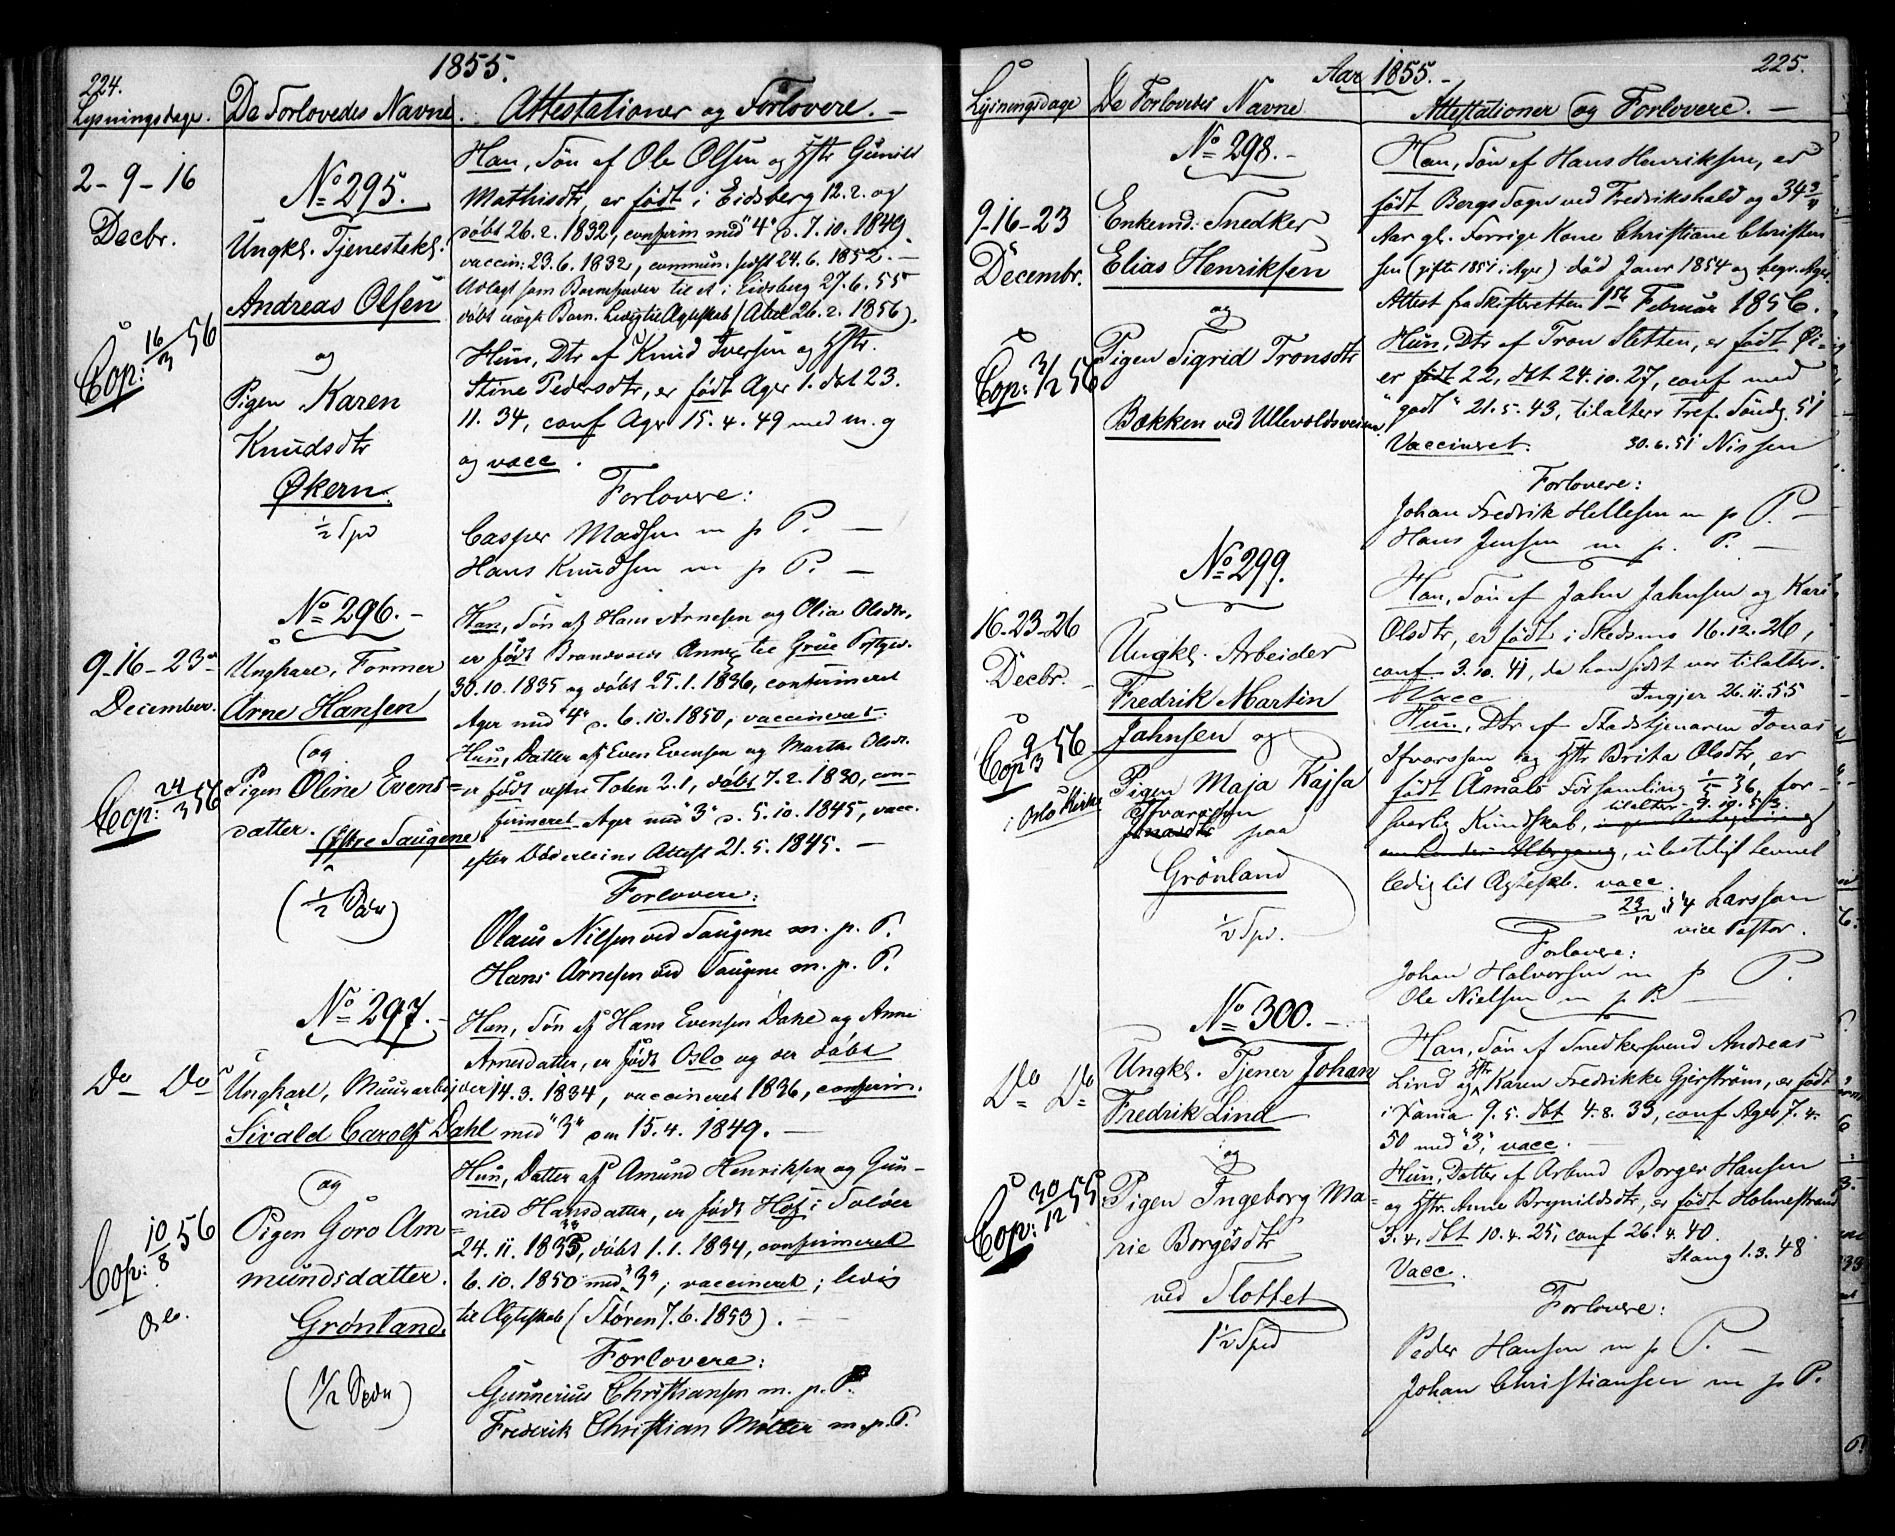 224.
1855.
Lysningsdage. De Forlovedes Navne. Attestationer og Forlovere. —
2 - 9 - 16
Decbr.
Cop: 16/3 56
No 295.
Ungkl. Tjenestekl.
Andreas Olsen
og
Pigen Karen
Knudsdtr
Økern.
1/2 Spd
Han, Søn af Ole Olsen og Hstr Gunild
Mathisdtr, er født i Eidsberg 12.2. og
døbt 26.2. 1832, confirm med "4" d. 7.10.1849.
vaccin: 23.6.1832, commun. sidst 24.6.1852. —
Udlagt som Barnefader til et i Eidsberg 27.6.55
døbt uægte Barn. Ledig til Ægteskab (Abel 26.2.1856).
Hun, Dtr af Knud Iversen og Hstr.
Stine Pedersdtr, er født Ager 1. dbt 23.
11.34, conf Ager 15.4.49 med m.g
og vacc.
Forlovere:
Casper Madsen m p P. —
Hans Knudsen m p P. —
9 - 16 - 23
December.
Cop: 24/3 56
No 296. -
Ungkarl, Former
Arne Hansen
og
Pigen Oline Evens=
datter.
Østre Saugene
(1/2 Spd)
Han, Søn af Hans Arnesen og Olia Olsdtr,
er født Brandvolds Annex til Grue Præstgjed.
30.10.1835 og døbt 25.1.1836, confirmeret
Ager med "4" d. 6.10.1850, vaccineret.
Hun, Datter af Even Evensen og Marthe Olsdtr.
er født vestre Toten 2.1, døbt 7.2.1830, con-
firmeret Ager med "3" d. 5.10.1845, vacc.
efter Døderleins Attest 21.5.1845. —
Forlovere:
Olaus Nilsen ved Saugene m. p. P.
Hans Arnesen ved Saugene m. p. P.
Do Do
Cop: 10/8 56
Oslo.
No 297. -
Ungkarl, Muurarbeider
Sivald Carolf Dahl
og
Pigen Goro Am=
mundsdatter.
Grønland.
(1/2 Spd)
Han, Søn af Hans Evensen Dahl og Anne
Arnesdatter, er født Oslo og der døbt
14.3.1834, vaccineret 1836, confirm.
med "3" den 15.4.1849. —
Hun, Datter af Amund Henriksen og Gun-
nild Hansdatter, er født Hof i Soløer
24.11.1833, døbt 1.1.1834, confirmeret
6.10.1850 med "3", vaccineret; ledig
til Ægteskab (Støren 7.6.1853).
Forlovere:
Gunnerius Christiansen m. p. P.
Frederik Christian Møller m. p. P.
Aar 1855. -
225.
Lysningsdage De Forlovedes Navne Attestationer og Forlovere. —
9-16-23
Decembr.
Cop: 3/2 56
No 298. -
Enkemd: Snedker
Elias Henriksen
og
Pigen Sigrid Tronsdtr
Bækken ved Ullevoldsveien
Han, Søn af Hans Henriksen, er
født Bergs Sogn ved Fredrikshald og 34 3/4
Aar gl. Forrige Kone Christiane Christen
sen (gifte 1851 i Ager) død Janr 1854 og begr. Ager
Attest fra Skifteretten 1ste Februar 1856.
Hun, Dtr af Tron Sletten, er født
er født 22, dbt 24.10.27, conf med
"godt" 21.5.43, tilalters Tref. Søndg. 51
Vaccineret. 30.6.51 Nissen
Forlovere:
Johan Fredrik Hellesen m p P. —
Hans Jensen m p. P. —
16-23-26
Decbr.
Cop 9/3 56
i Oslo Kirke
No 299.
Ungkl. Arbeider
Fredrik Martin
Jahnsen og
Pigen Maja Kajsa
Ifvarsson
Jonasdtr paa
Grønland
1/2 Spd.
Han, Søn af Jahn Jahnsen og Kari
Olsdtr, er født i Skedsmo 16.12.20,
conf 3.10.41, da han sidst var tilalters.
Vacc Ingjer 26.11.55
Hun, Dtr af Stadstjenaren Jonas
Ifvarsson og Hstr Brita Olsdtr, er
født Åmåls Församling 1/5 36, för-
svarlig Kundskab,
ledig til Ægteskb. vacc
23/12 54 Larsson
vice Pastor.
Forlovere:
Johan Halvorsen m p P.
Ole Nielsen m p P. —
Do Do
Cop: 30/12 55
No 300. -
Ungkl. Tjener Johan
Fredrik Lind
og
Pigen Ingeborg Ma=
rie Borgesdtr
ved Slottet
1 1/2 Spd
Han, Søn af Snedkersvend Andreas
Lind og Hstr Karen Fredrikke Gjerstrøm, er født
9.5. dbt 4.8.33, conf Ager 7.4.
50 med "3", vacc. —
Hun, Datter af Arbmd Borger Hansen
og Hstr. Anne Brynildsdtr, er født Holmestrand
3.4, dbt 10.4.25, conf 26.4.40.
Vacc. Stang 1.3.48
Forlovere:
Peder Hansen m p P. —
Johan Christiansen m p P.